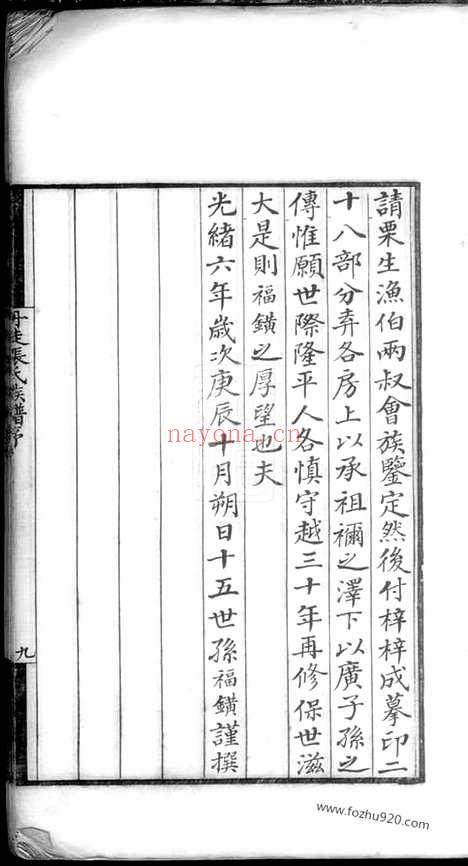 請栗生漁伯兩叔會族鑒定然後付梓梓成摹印二
十八部分弆各房上以承祖禰之澤下以廣子孫之
傳惟願世際隆平人各慎守越三十年再修保世滋
大是則福鐄之厚望也夫
光緒六年歲次庚辰十月朔日十五世孫福鐄謹撰
張氏族譜序
九
nayona.cn
www.fozhu920.com